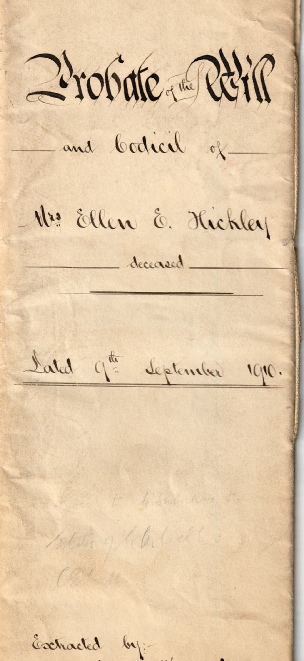 Probate of the Will
and Codicil of
Mrs Ellen E. Hickley
deceased
Dated 9th September 1910.
Extracted by:-